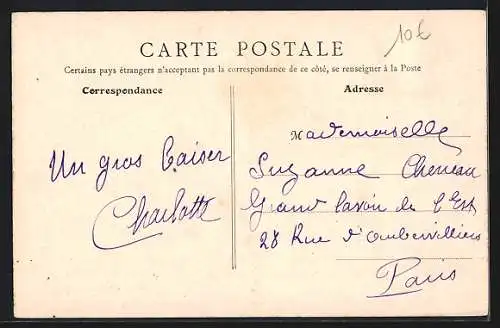 10€
CARTE POSTALE
Certains pays étrangers n'acceptant pas la correspondance de ce côté, se renseigner à la Poste
Correspondance
Adresse
Mademoiselle
Suzanne Cheneau
Grand lavoir de l'Est
28 Rue d'Aubervilliers
Paris
Un gros baiser
Charlotte